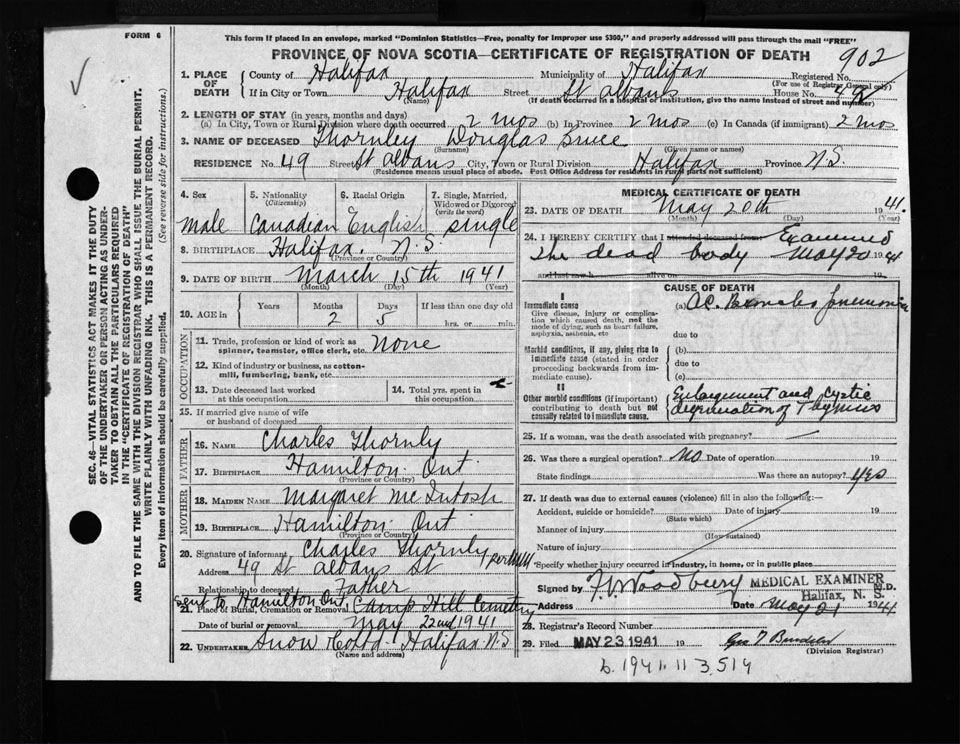 FORM 6
This form if placed in an envelope, marked "Dominion Statistics—Free, penalty for improper use $300," and properly addressed will pass through the mail "FREE"
PROVINCE OF NOVA SCOTIA—CERTIFICATE OF REGISTRATION OF DEATH
902
SEC. 46—VITAL STATISTICS ACT MAKES IT THE DUTY OF THE UNDERTAKER OR PERSON ACTING AS UNDERTAKER TO OBTAIN ALL THE PARTICULARS REQUIRED IN THE "CERTIFICATE OF REGISTRATION OF DEATH"
AND TO FILE THE SAME WITH THE DIVISION REGISTRAR WHO SHALL ISSUE THE BURIAL PERMIT.
WRITE PLAINLY WITH UNFADING INK. THIS IS A PERMANENT RECORD.
Every item of information should be carefully supplied. (See reverse side for instructions.)
1. PLACE OF DEATH County of Halifax Municipality of Halifax Registered No.
(For use of Registrar General only)
If in City or Town Halifax Street St Albans House No. 49
(Name) (If death occurred in a hospital or institution, give the name instead of street and number)
2. LENGTH OF STAY (in years, months and days)
(a) In City, Town or Rural Division where death occurred 2 mos (b) In Province 2 mos (c) In Canada (if immigrant) 2 mos
3. NAME OF DECEASED Thornley Douglas Bruce
(Surname) (Given name or names)
RESIDENCE No. 49 Street St Albans City, Town or Rural Division Halifax Province N.S.
(Residence means usual place of abode. Post Office Address for residents in rural parts not sufficient)
4. Sex 5. Nationality (Citizenship) 6. Racial Origin 7. Single, Married, Widowed or Divorced (write the word)
male Canadian English single
8. BIRTHPLACE Halifax. N.S.
(Province or Country)
9. DATE OF BIRTH March 15th 1941
(Month) (Day) (Year)
10. AGE in Years Months Days If less than one day old
2 5 hrs. or min.
OCCUPATION
11. Trade, profession or kind of work as spinner, teamster, office clerk, etc. None
12. Kind of industry or business, as cotton-mill, lumbering, bank, etc.
13. Date deceased last worked at this occupation 14. Total yrs. spent in this occupation
15. If married give name of wife or husband of deceased
FATHER
16. NAME Charles Thornly
17. BIRTHPLACE Hamilton Ont
(Province or Country)
MOTHER
18. MAIDEN NAME Margaret Mc Intosh
19. BIRTHPLACE Hamilton Ont
(Province or Country)
20. Signature of informant Charles Thornly per
Address 49 St Albans St
Relationship to deceased Father
sent to Hamilton Ont
21. Place of Burial, Cremation or Removal Camp Hill Cemetery
Date of burial or removal May 22nd 1941
22. UNDERTAKER Snow Co Ltd. Halifax N.S
(Name and address)
MEDICAL CERTIFICATE OF DEATH
23. DATE OF DEATH May 20th 1941.
(Month) (Day) (Year)
24. I HEREBY CERTIFY that I attended deceased from Examined
the dead body May 20 1941
and last saw h alive on 19
CAUSE OF DEATH
I
Immediate cause
Give disease, injury or complication which caused death, not the mode of dying, such as heart failure, asphyxia, asthenia, etc
(a) Ac. Broncho pneumonia
due to
Morbid conditions, if any, giving rise to immediate cause (stated in order proceeding backwards from immediate cause).
(b)
due to
(c)
II
Other morbid conditions (if important) contributing to death but not causally related to immediate cause.
Enlargement and cystic
degeneration of Thymus
25. If a woman, was the death associated with pregnancy?
26. Was there a surgical operation? No Date of operation 19
State findings Was there an autopsy? yes
27. If death was due to external causes (violence) fill in also the following:—
Accident, suicide or homicide? Date of injury 19
(State which)
Manner of injury
(How sustained)
Nature of injury
*Specify whether injury occurred in industry, in home, or in public place
Signed by F. Woodbury MEDICAL EXAMINER M.D.
Halifax, N. S.
Address Date May 21 1941
28. Registrar's Record Number
29. Filed MAY 23 1941 19
(Division Registrar)
b. 1941. 113,519